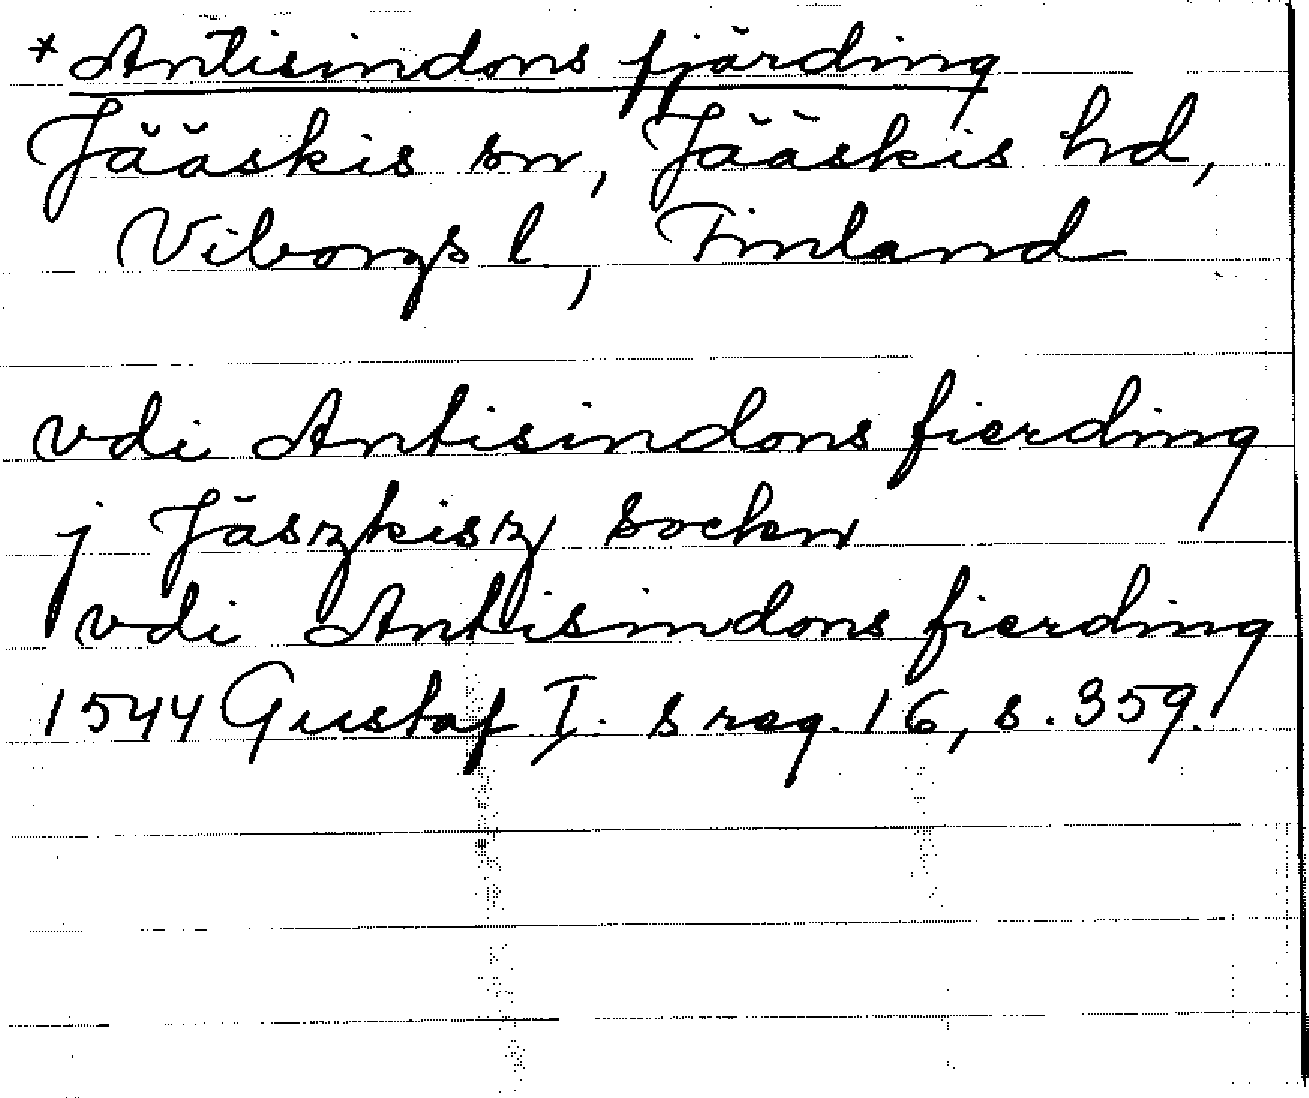 * Antisindons fjärding
Jääskis sn, Jääskis hd,
Viborgs l, Finland
vdi Antisindons fierding
j Jäszkisz sockn
vdi Antisindons fierding
1544 Gustaf I. s reg. 16, s. 359.